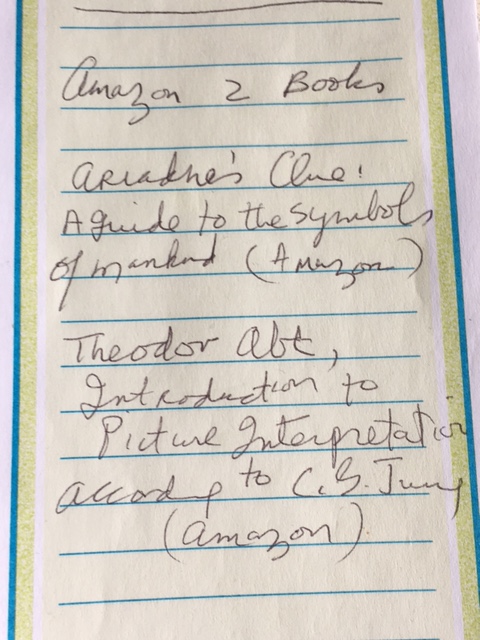 Amazon 2 Books
Ariadne's Clue:
A guide to the symbols
of mankind (Amazon)
Theodor Abt,
Introduction to
Picture Interpretation
according to C.G. Jung
(Amazon)